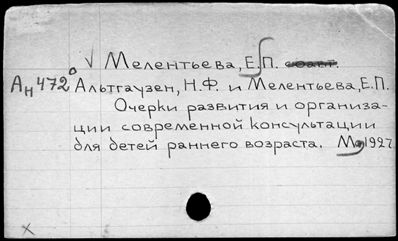 √ Мелентьева, Е.П. соавт.
Ан472° Альтгаузен, Н.Ф. и Мелентьева, Е.П.
Очерки развития и организа-
ции современной консультации
для детей раннего возраста. М., 1927
x